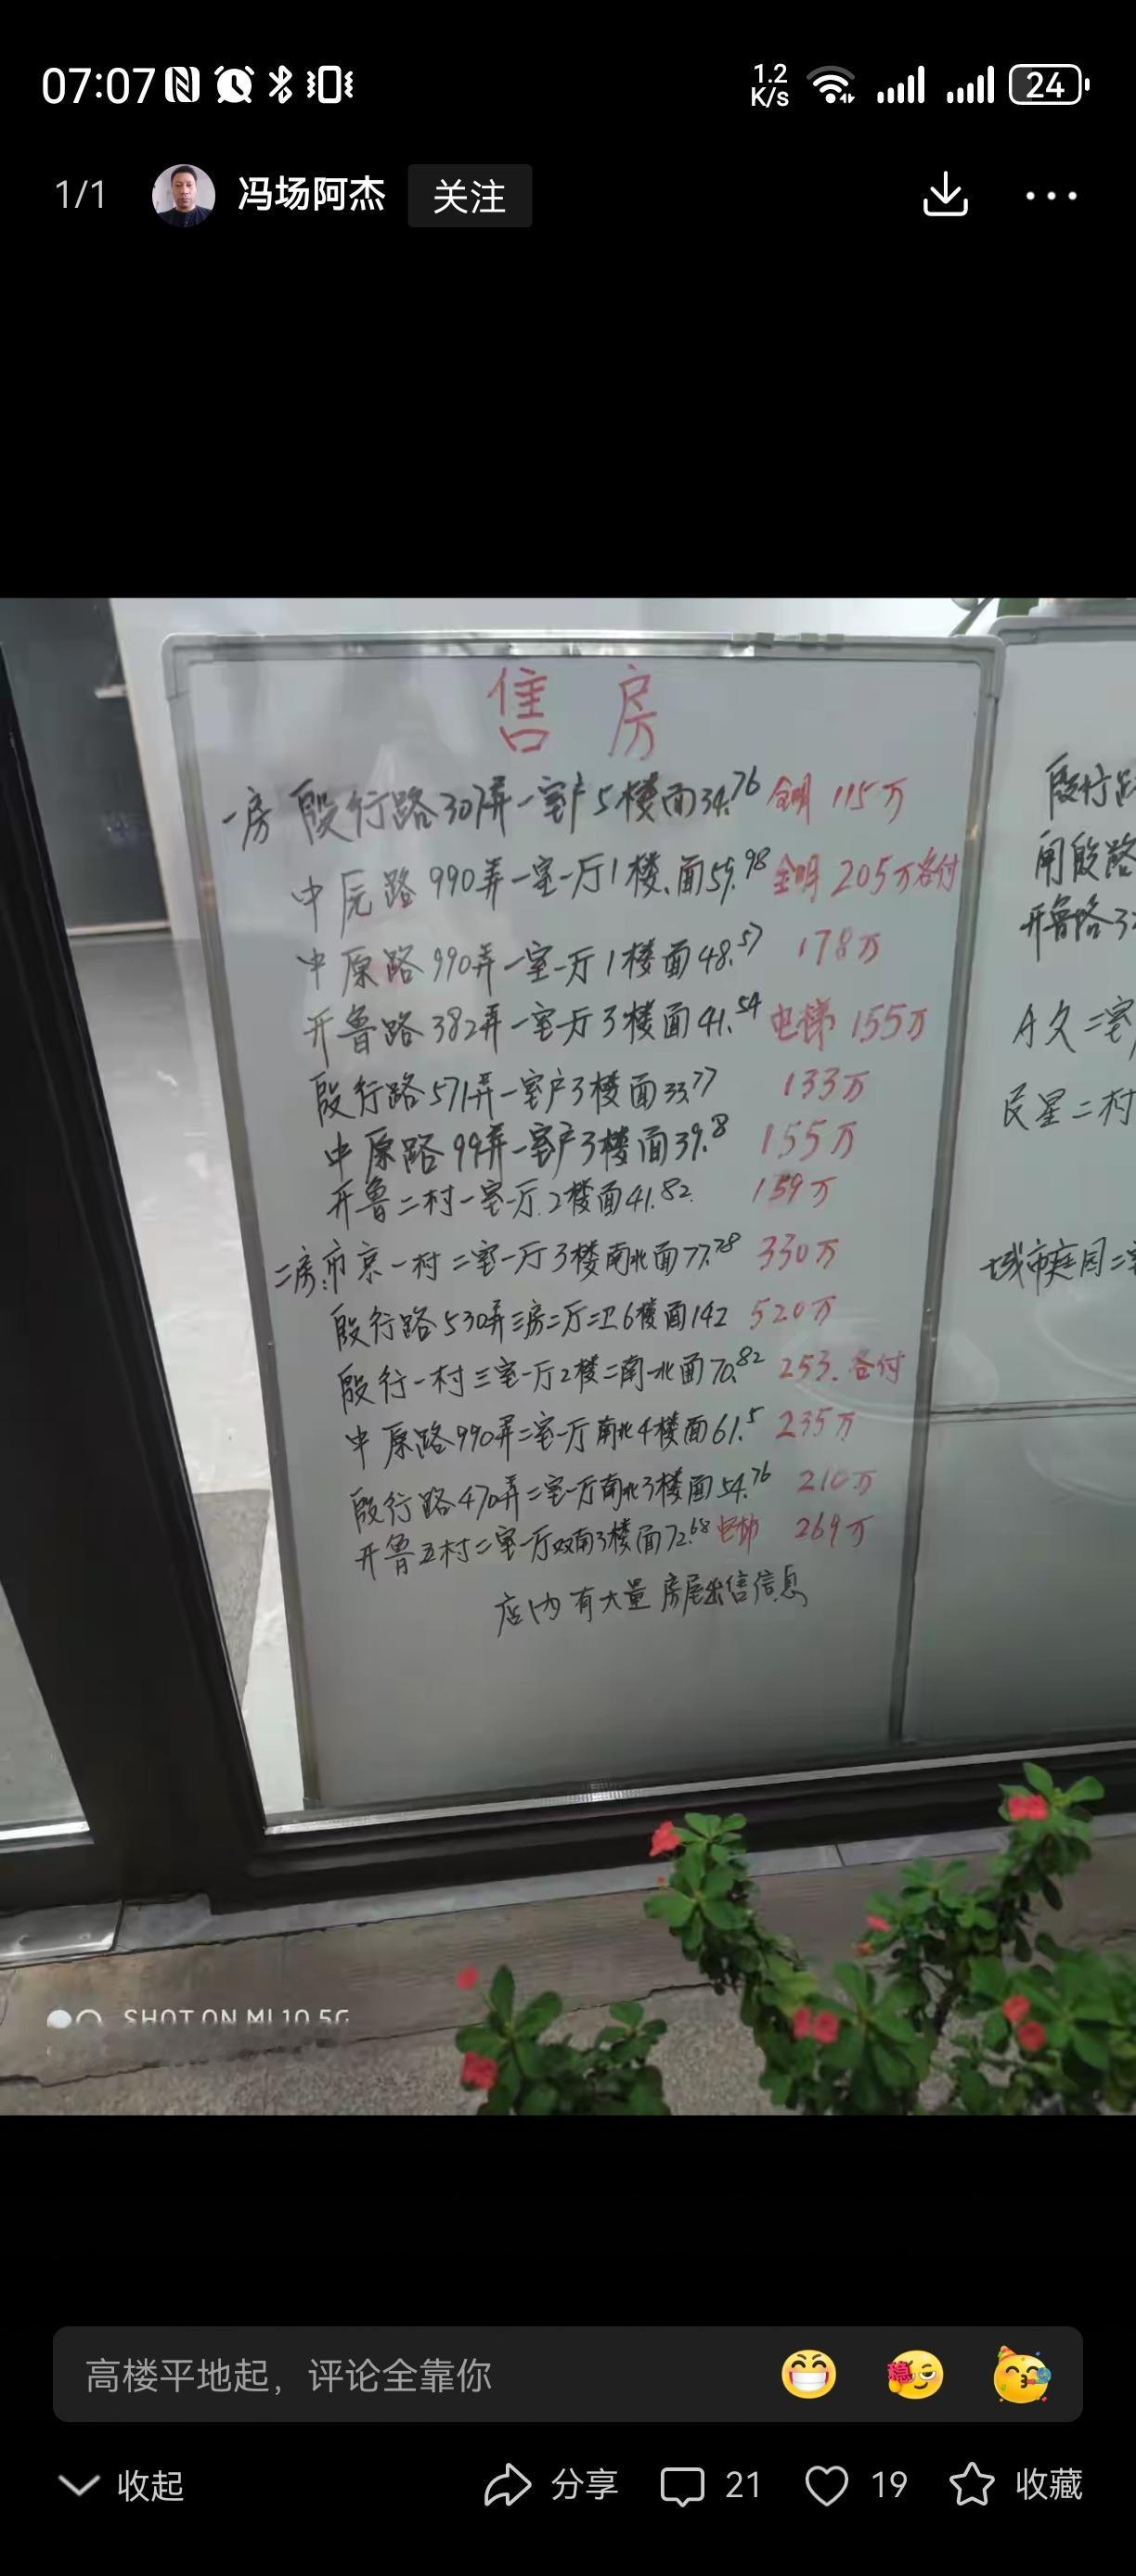 07:07
1.2 K/s
24
1/1 冯场阿杰 关注
售房
一房 殷行路307弄一室户5楼面34.76 全明 115万
中原路990弄一室一厅1楼、面59.98 全明 205万各付
中原路990弄一室一厅1楼面48.57 178万
开鲁路382弄一室一厅3楼面41.54 电梯 155万
殷行路571弄一室户3楼面33.77 133万
中原路99弄一室户3楼面39.8 155万
开鲁二村一室一厅.2楼面41.82. 159万
二房:市京一村 二室一厅3楼南北面77.78 330万
殷行路530弄三房二厅二卫6楼面142 520万
殷行一村三室一厅2楼二南一北面70.82 253.各付
中原路990弄二室一厅南北4楼面61.5 235万
殷行路470弄二室一厅南北3楼面54.76 210万
开鲁五村二室一厅双南3楼面72.68 电梯 269万
店内有大量房屋出售信息
殷行路
闸殷路
开鲁路3
二室
民星二村
城市庭园二室
SHOT ON MI 10 5G
高楼平地起，评论全靠你
收起 分享 21 19 收藏